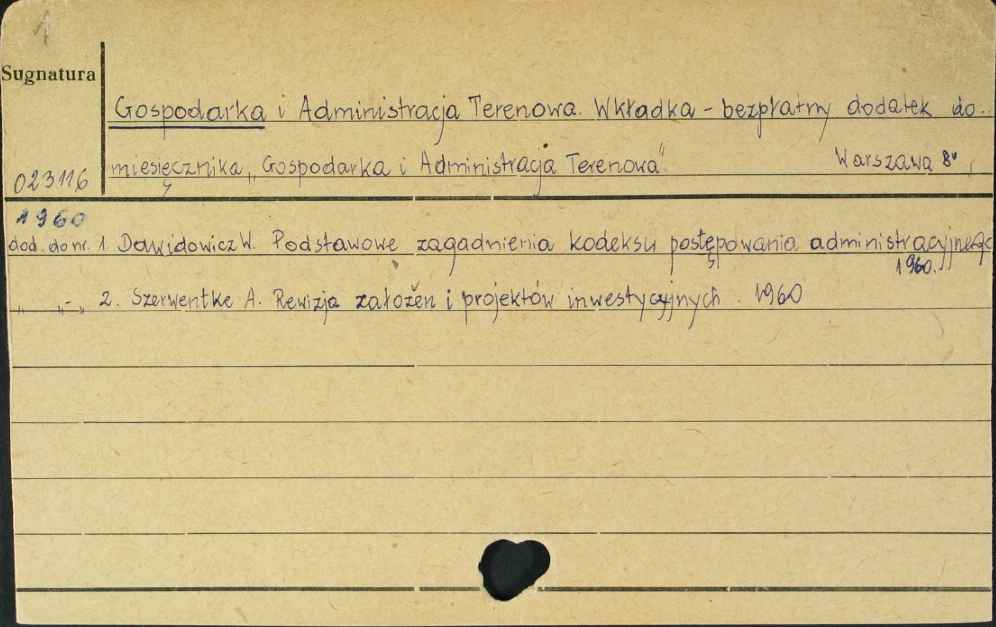 1
Sugnatura
Gospodarka i Administracja Terenowa. Wkładka - bezpłatny dodatek do
miesięcznika „Gospodarka i Administracja Terenowa" Warszawa 8°
023116
1960
dod. do nr. 1. Dawidowicz W. Podstawowe zagadnienia kodeksu postępowania administracyjnego
1960.
„ -„- 2. Szerwentke A. Rewizja założeń i projektów inwestycyjnych. 1960